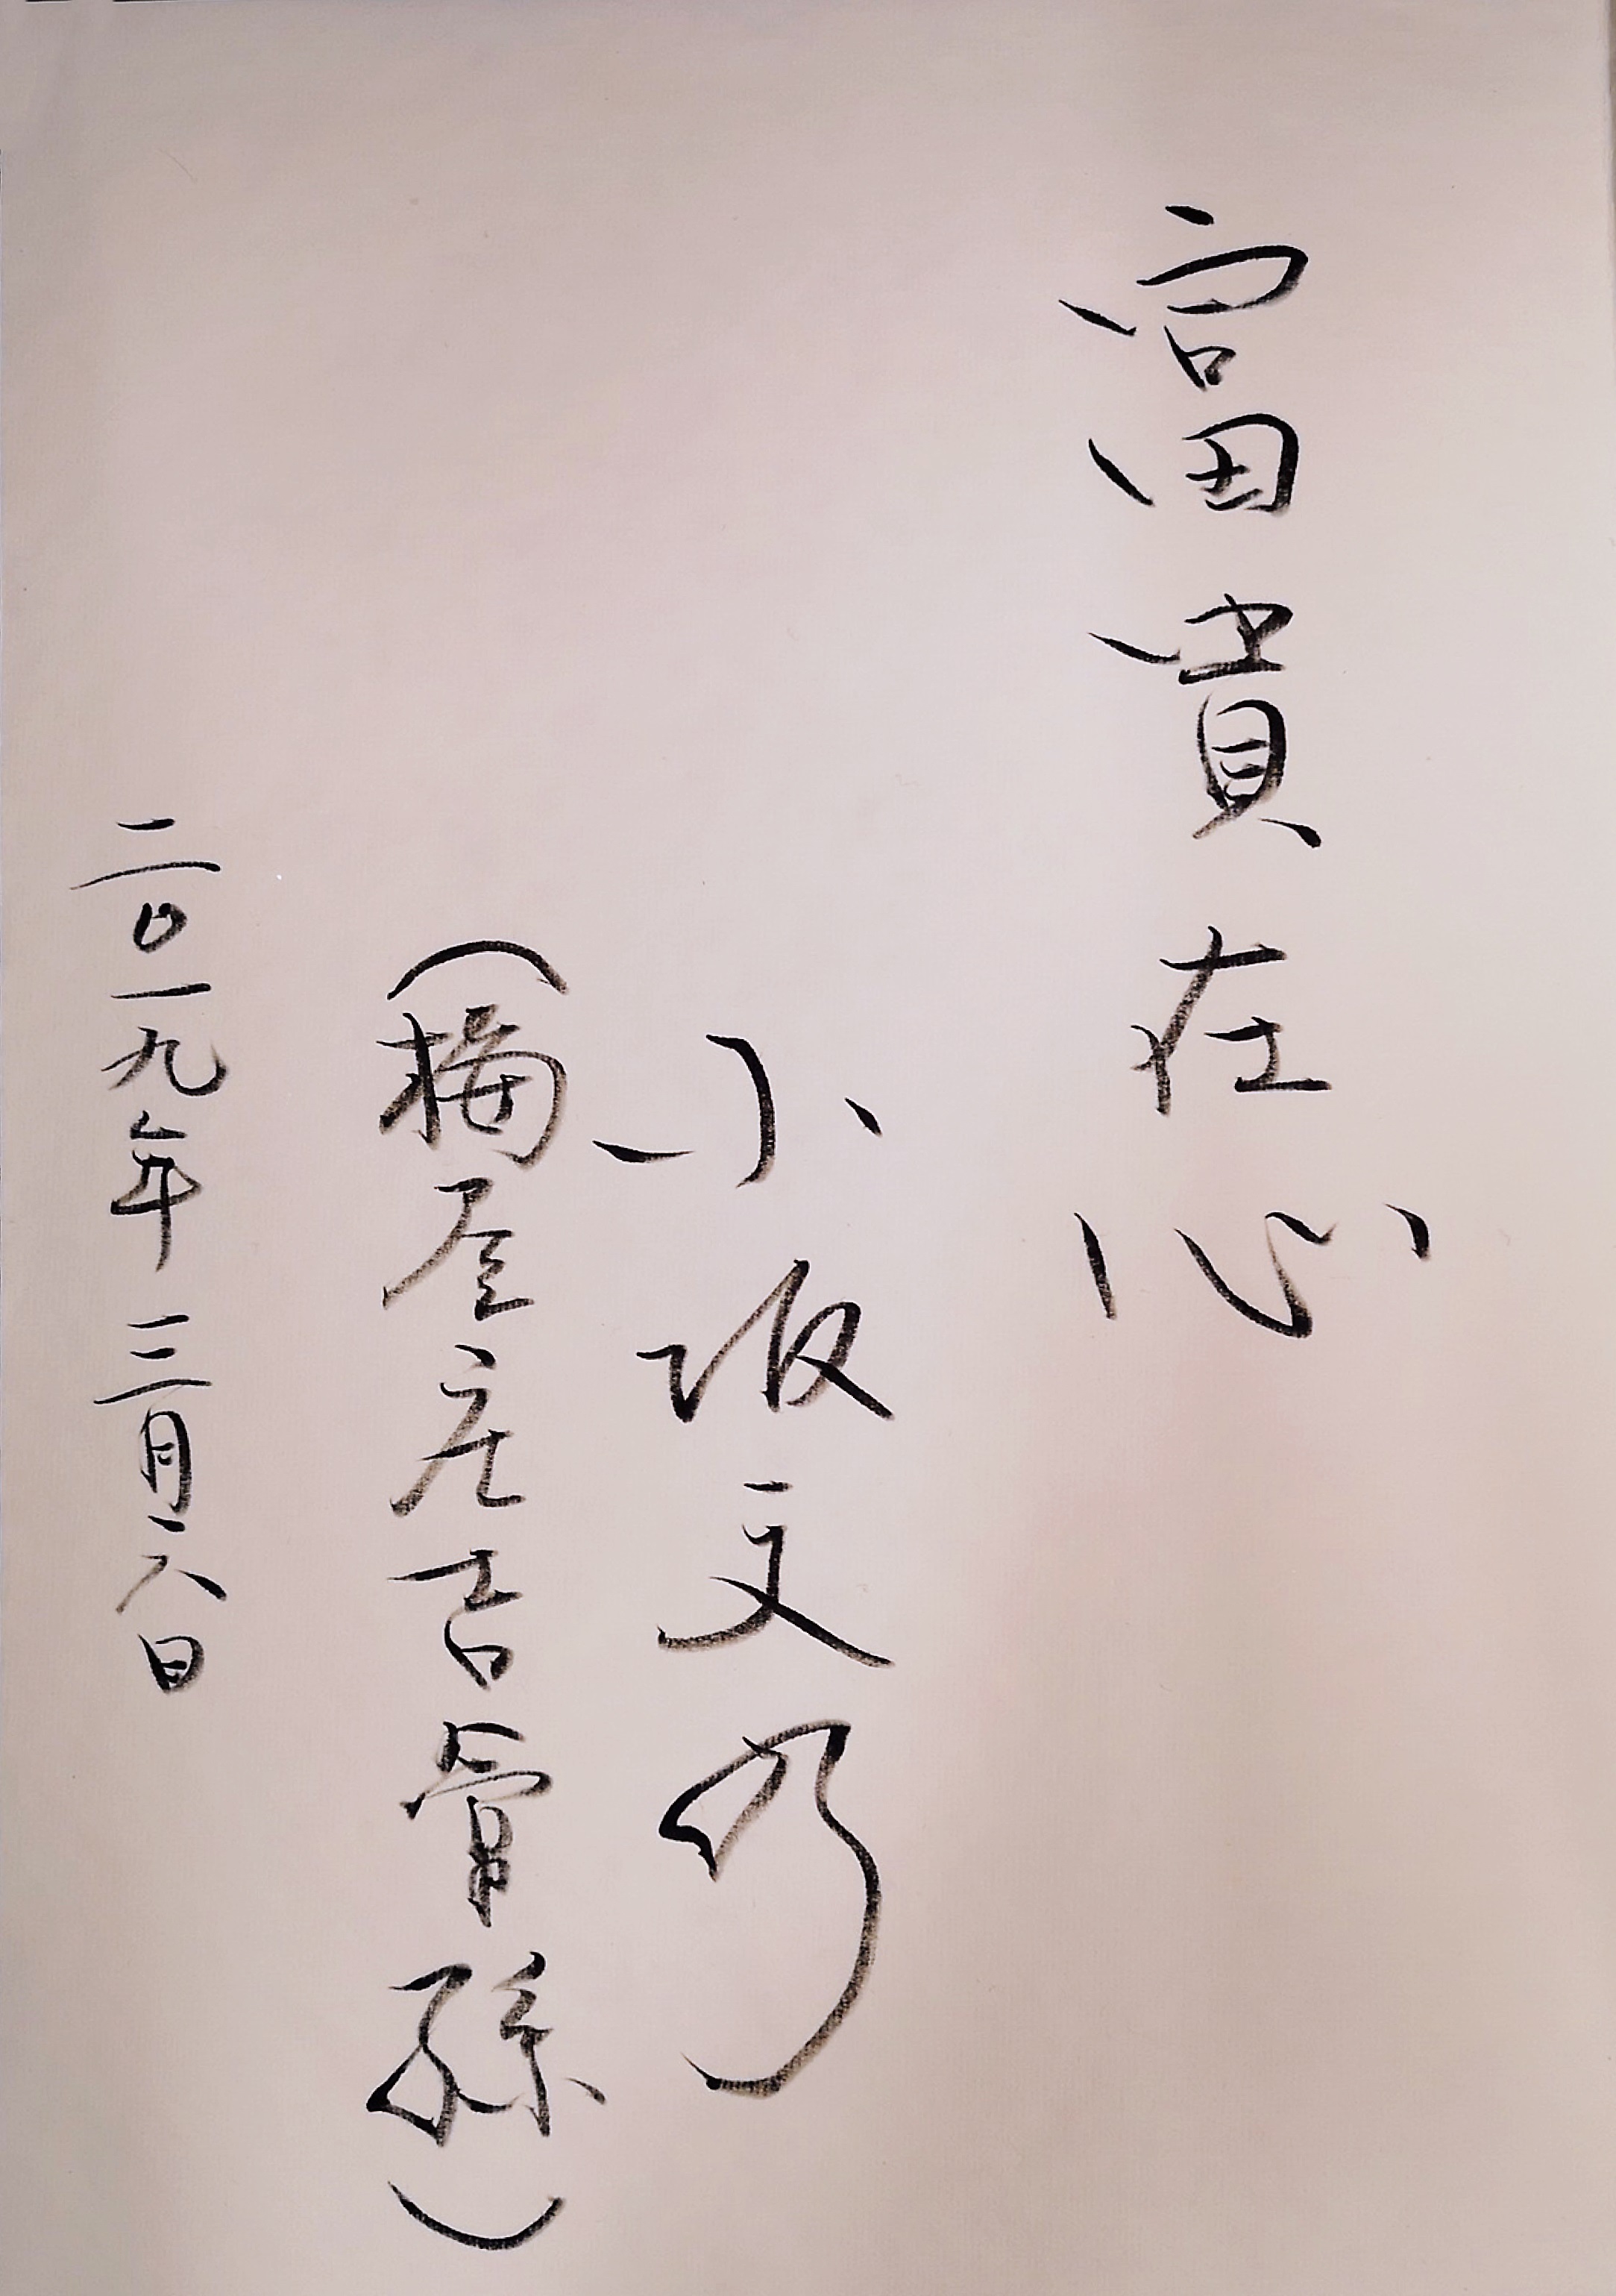 富貴在心
小坂文乃
(梅屋庄吉曽孫)
二〇一九年三月六日